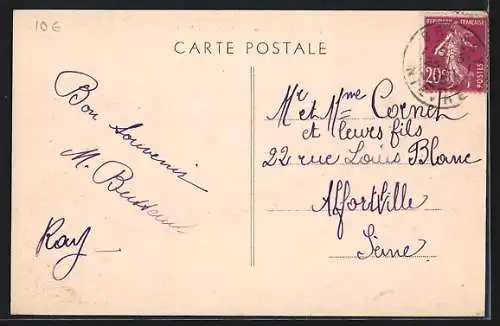 10 €
CARTE POSTALE
RÉPUBLIQUE FRANÇAISE
20c
POSTES
NIÈVRE
Bon souvenir
M.
Ray
Mr et Mme Cornet
et leurs fils
22 rue Louis Blanc
Alfortville
Seine